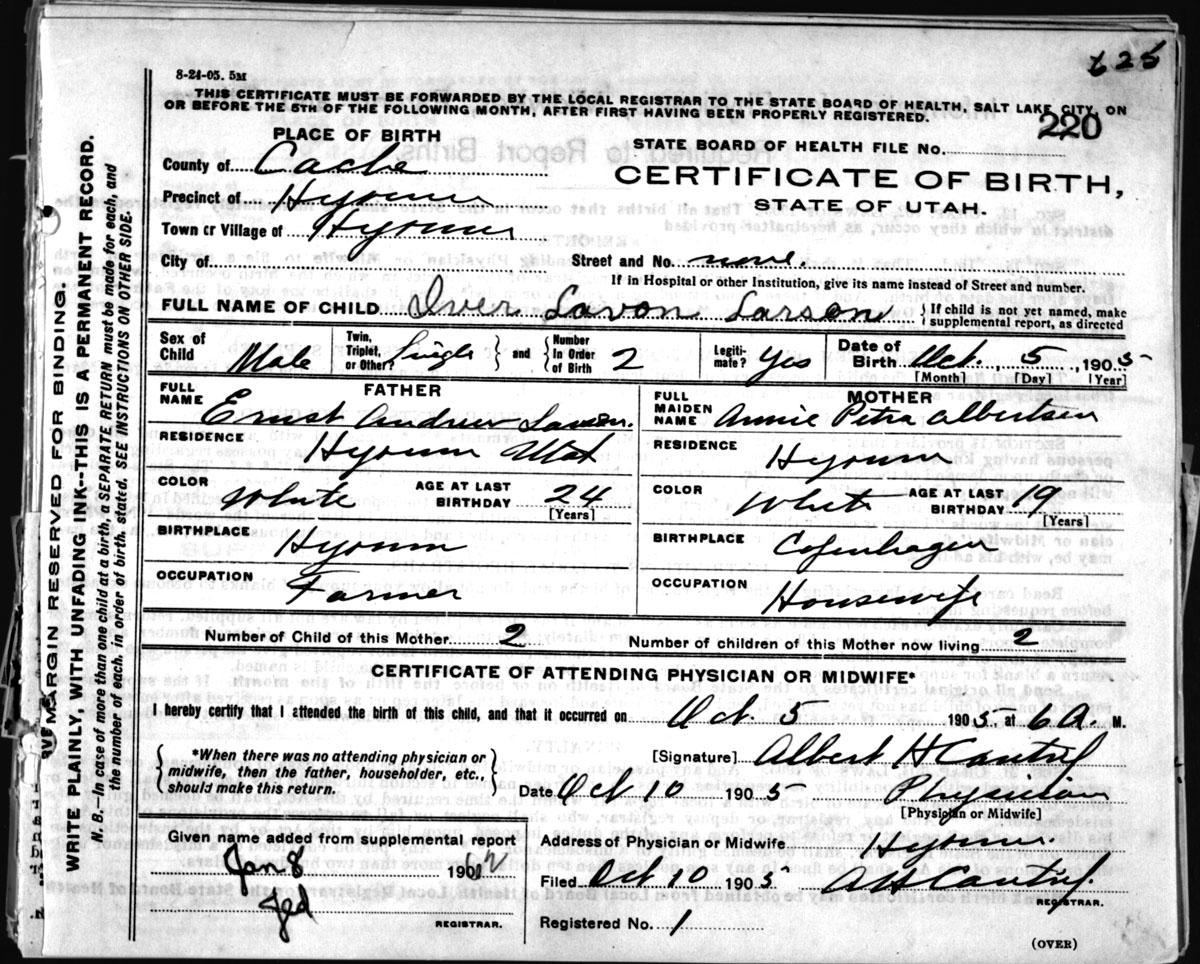 625
8-24-05. 5M
THIS CERTIFICATE MUST BE FORWARDED BY THE LOCAL REGISTRAR TO THE STATE BOARD OF HEALTH, SALT LAKE CITY, ON
OR BEFORE THE 5TH OF THE FOLLOWING MONTH, AFTER FIRST HAVING BEEN PROPERLY REGISTERED.
220
PLACE OF BIRTH
STATE BOARD OF HEALTH FILE No.
County of Cache
CERTIFICATE OF BIRTH,
Precinct of Hyrum
STATE OF UTAH.
Town or Village of Hyrum
City of
Street and No. none
If in Hospital or other Institution, give its name instead of Street and number.
FULL NAME OF CHILD Iver Lavon Larson { If child is not yet named, make
supplemental report, as directed
Sex of Child Male
Twin, Triplet, or Other? Single } and { Number In Order of Birth 2
Legiti-mate? Yes
Date of Birth Oct. 5, 1905
[Month] [Day] [Year]
FATHER
FULL NAME Ernst Andrew Larson.
MOTHER
FULL MAIDEN NAME Annie Petra Albertsen
RESIDENCE Hyrum Utah
RESIDENCE Hyrum
COLOR White AGE AT LAST BIRTHDAY 24
[Years]
COLOR White AGE AT LAST BIRTHDAY 19
[Years]
BIRTHPLACE Hyrum
BIRTHPLACE Copenhagen
OCCUPATION Farmer
OCCUPATION Housewife
Number of Child of this Mother 2 Number of children of this Mother now living 2
CERTIFICATE OF ATTENDING PHYSICIAN OR MIDWIFE*
I hereby certify that I attended the birth of this child, and that it occurred on Oct. 5 1905, at 6 A. M.
{ *When there was no attending physician or
midwife, then the father, householder, etc.,
should make this return. }
[Signature] Albert H Cantril
Date Oct 10 1905 Physician
[Physician or Midwife]
Given name added from supplemental report
Jan 8 1962
Jed
REGISTRAR.
Address of Physician or Midwife Hyrum.
Filed Oct 10 1905 A H Cantril
REGISTRAR.
Registered No. 1
(OVER)
VE MARGIN RESERVED FOR BINDING.
WRITE PLAINLY, WITH UNFADING INK--THIS IS A PERMANENT RECORD.
N. B.--In case of more than one child at a birth, a SEPARATE RETURN must be made for each, and
the number of each, in order of birth, stated. SEE INSTRUCTIONS ON OTHER SIDE.